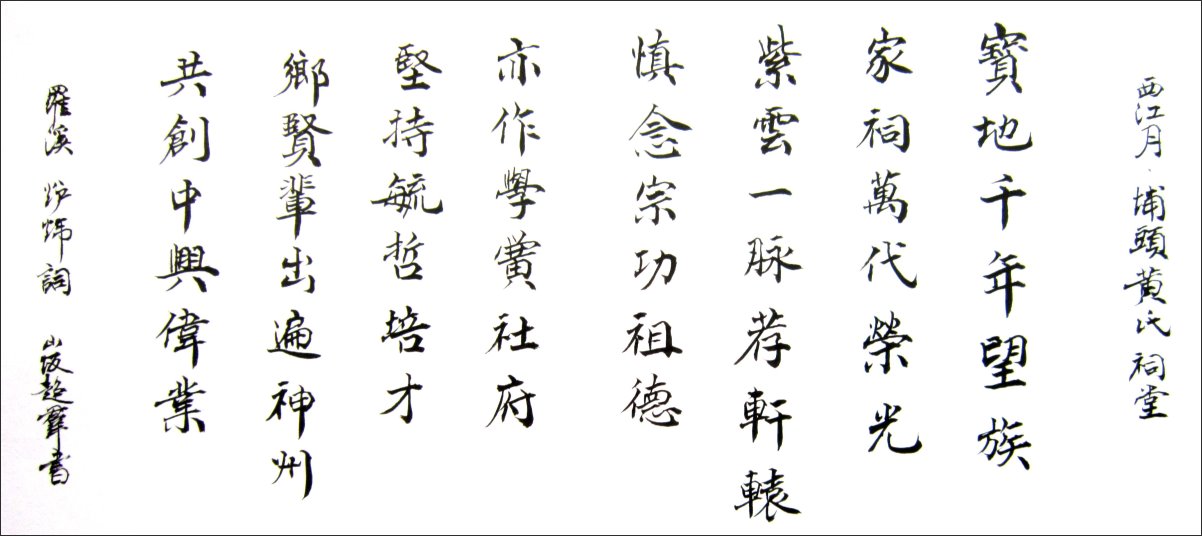 西江月·埔頭黃氏祠堂
寶地千年望族
家祠萬代榮光
紫雲一脉荐軒轅
慎念宗功祖德
亦作學黌社府
堅持毓哲培才
鄉賢輩出遍神州
共創中興偉業
羅溪 炉炜詞 超群書